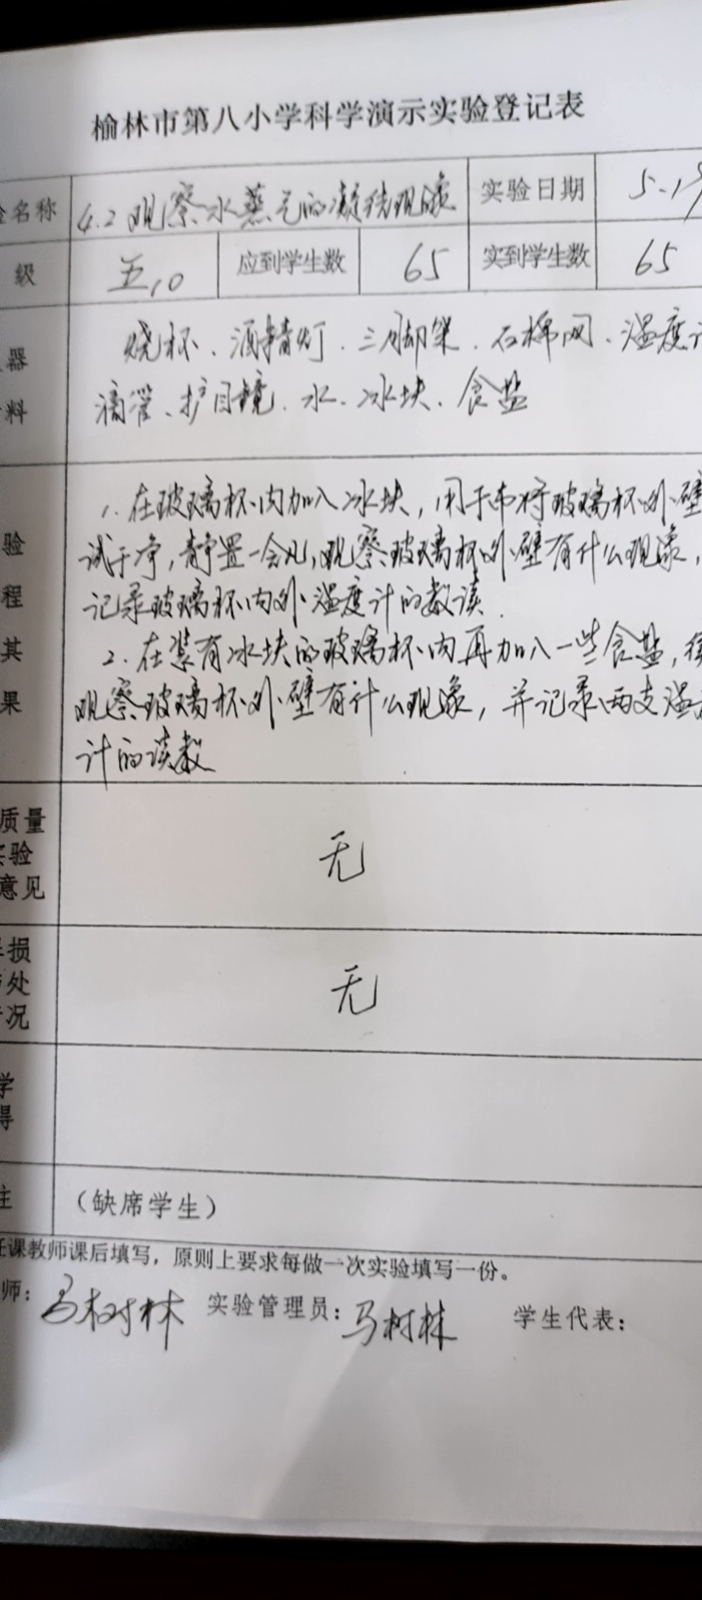 榆林市第八小学科学演示实验登记表
名称 4.2 观察水蒸气的凝结现象 实验日期 5-19
级 五.10 应到学生数 65 实到学生数 65
器 烧杯、酒精灯、三脚架、石棉网、温度计
料 滴管、护目镜、水、冰块、食盐
1. 在玻璃杯内加入冰块,用干布将玻璃杯外壁
验 试干净,静置一会儿,观察玻璃杯外壁有什么现象,
程 记录玻璃杯内外温度计的数读.
其 2. 在装有冰块的玻璃杯内再加入一些食盐,
果 观察玻璃杯外壁有什么现象,并记录两支温
计的读数
质量
验 无
意见
损
处 无
况
学
得
注 (缺席学生)
任课教师课后填写,原则上要求每做一次实验填写一份。
师: 马树林 实验管理员: 马树林 学生代表: